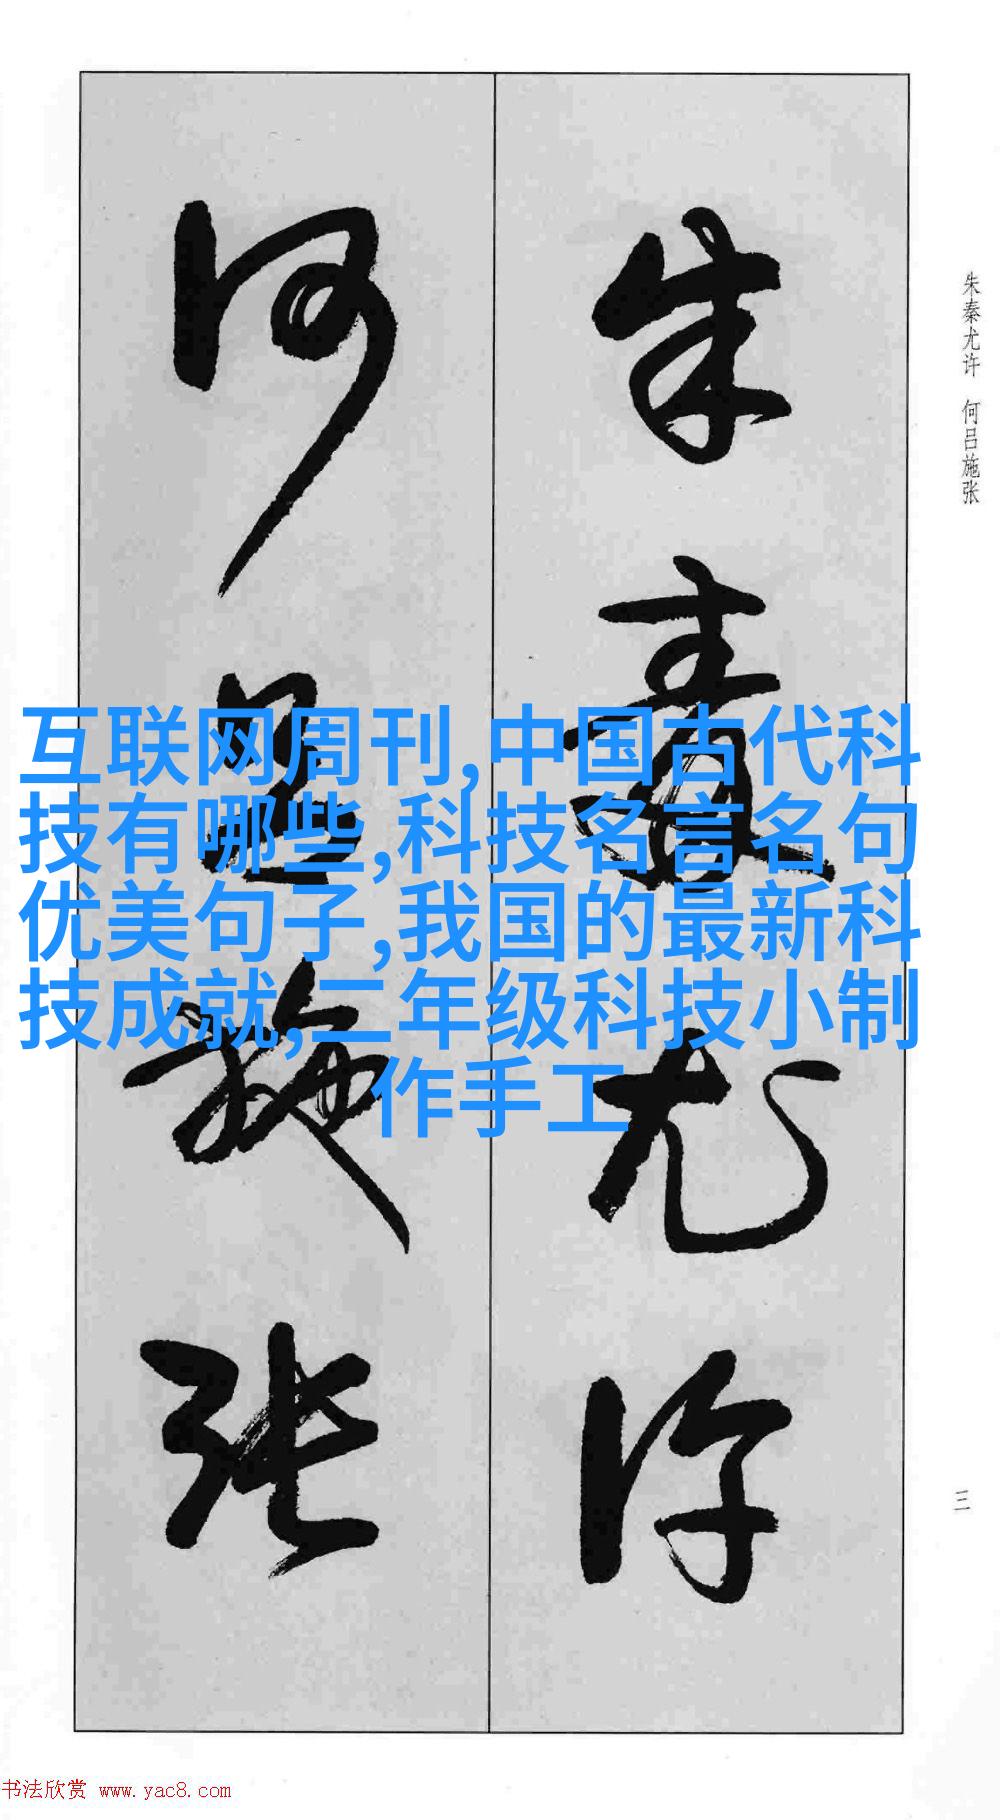 朱秦尤许
何吕施张
朱秦尤许 何吕施张
三
互联网周刊,中国古代科
技有哪些,科技名言名句
优美句子,我国的最新科
技成就,二年级科技小制
作手工
书法欣赏 www.yac8.com